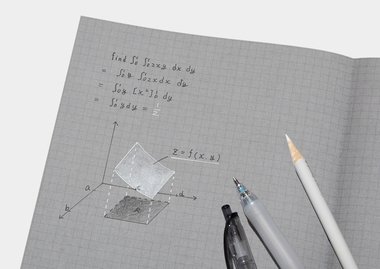 find ∫₀¹ ∫₀¹ 2xy dx dy
= ∫₀¹ y ∫₀¹ 2x dx dy
= ∫₀¹ y [x²]₀¹ dy
= ∫₀¹ y dy = 1/2
z = f(x, y)
a
d
b
R